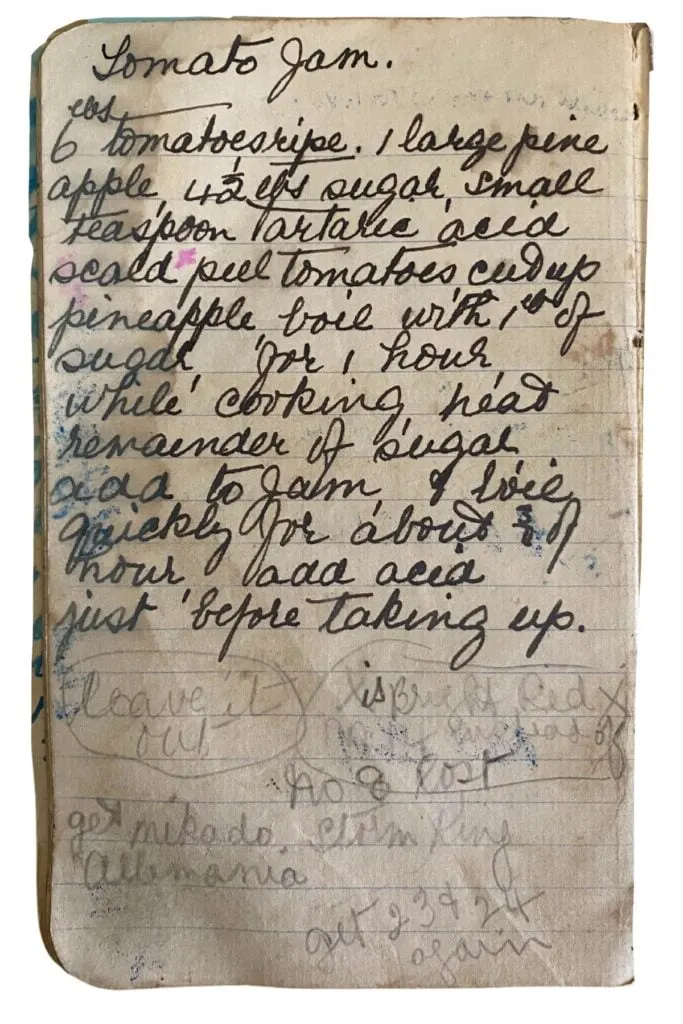 Tomato Jam.
lbs
6 tomatoes ripe. 1 large pine
apple, 4½ lbs sugar, small
teaspoon Tartaric acid
scald peel tomatoes cut up
pineapple, boil with 1 lb of
sugar for 1 hour,
while cooking heat
remainder of sugar
add to Jam & boil
quickly for about ¾ of
hour add acid
just before taking up.
leave it
out
is Bright Red X
instead of
No 8 Post
get mikado. Storm King
Allemania
get 23 & 24
again